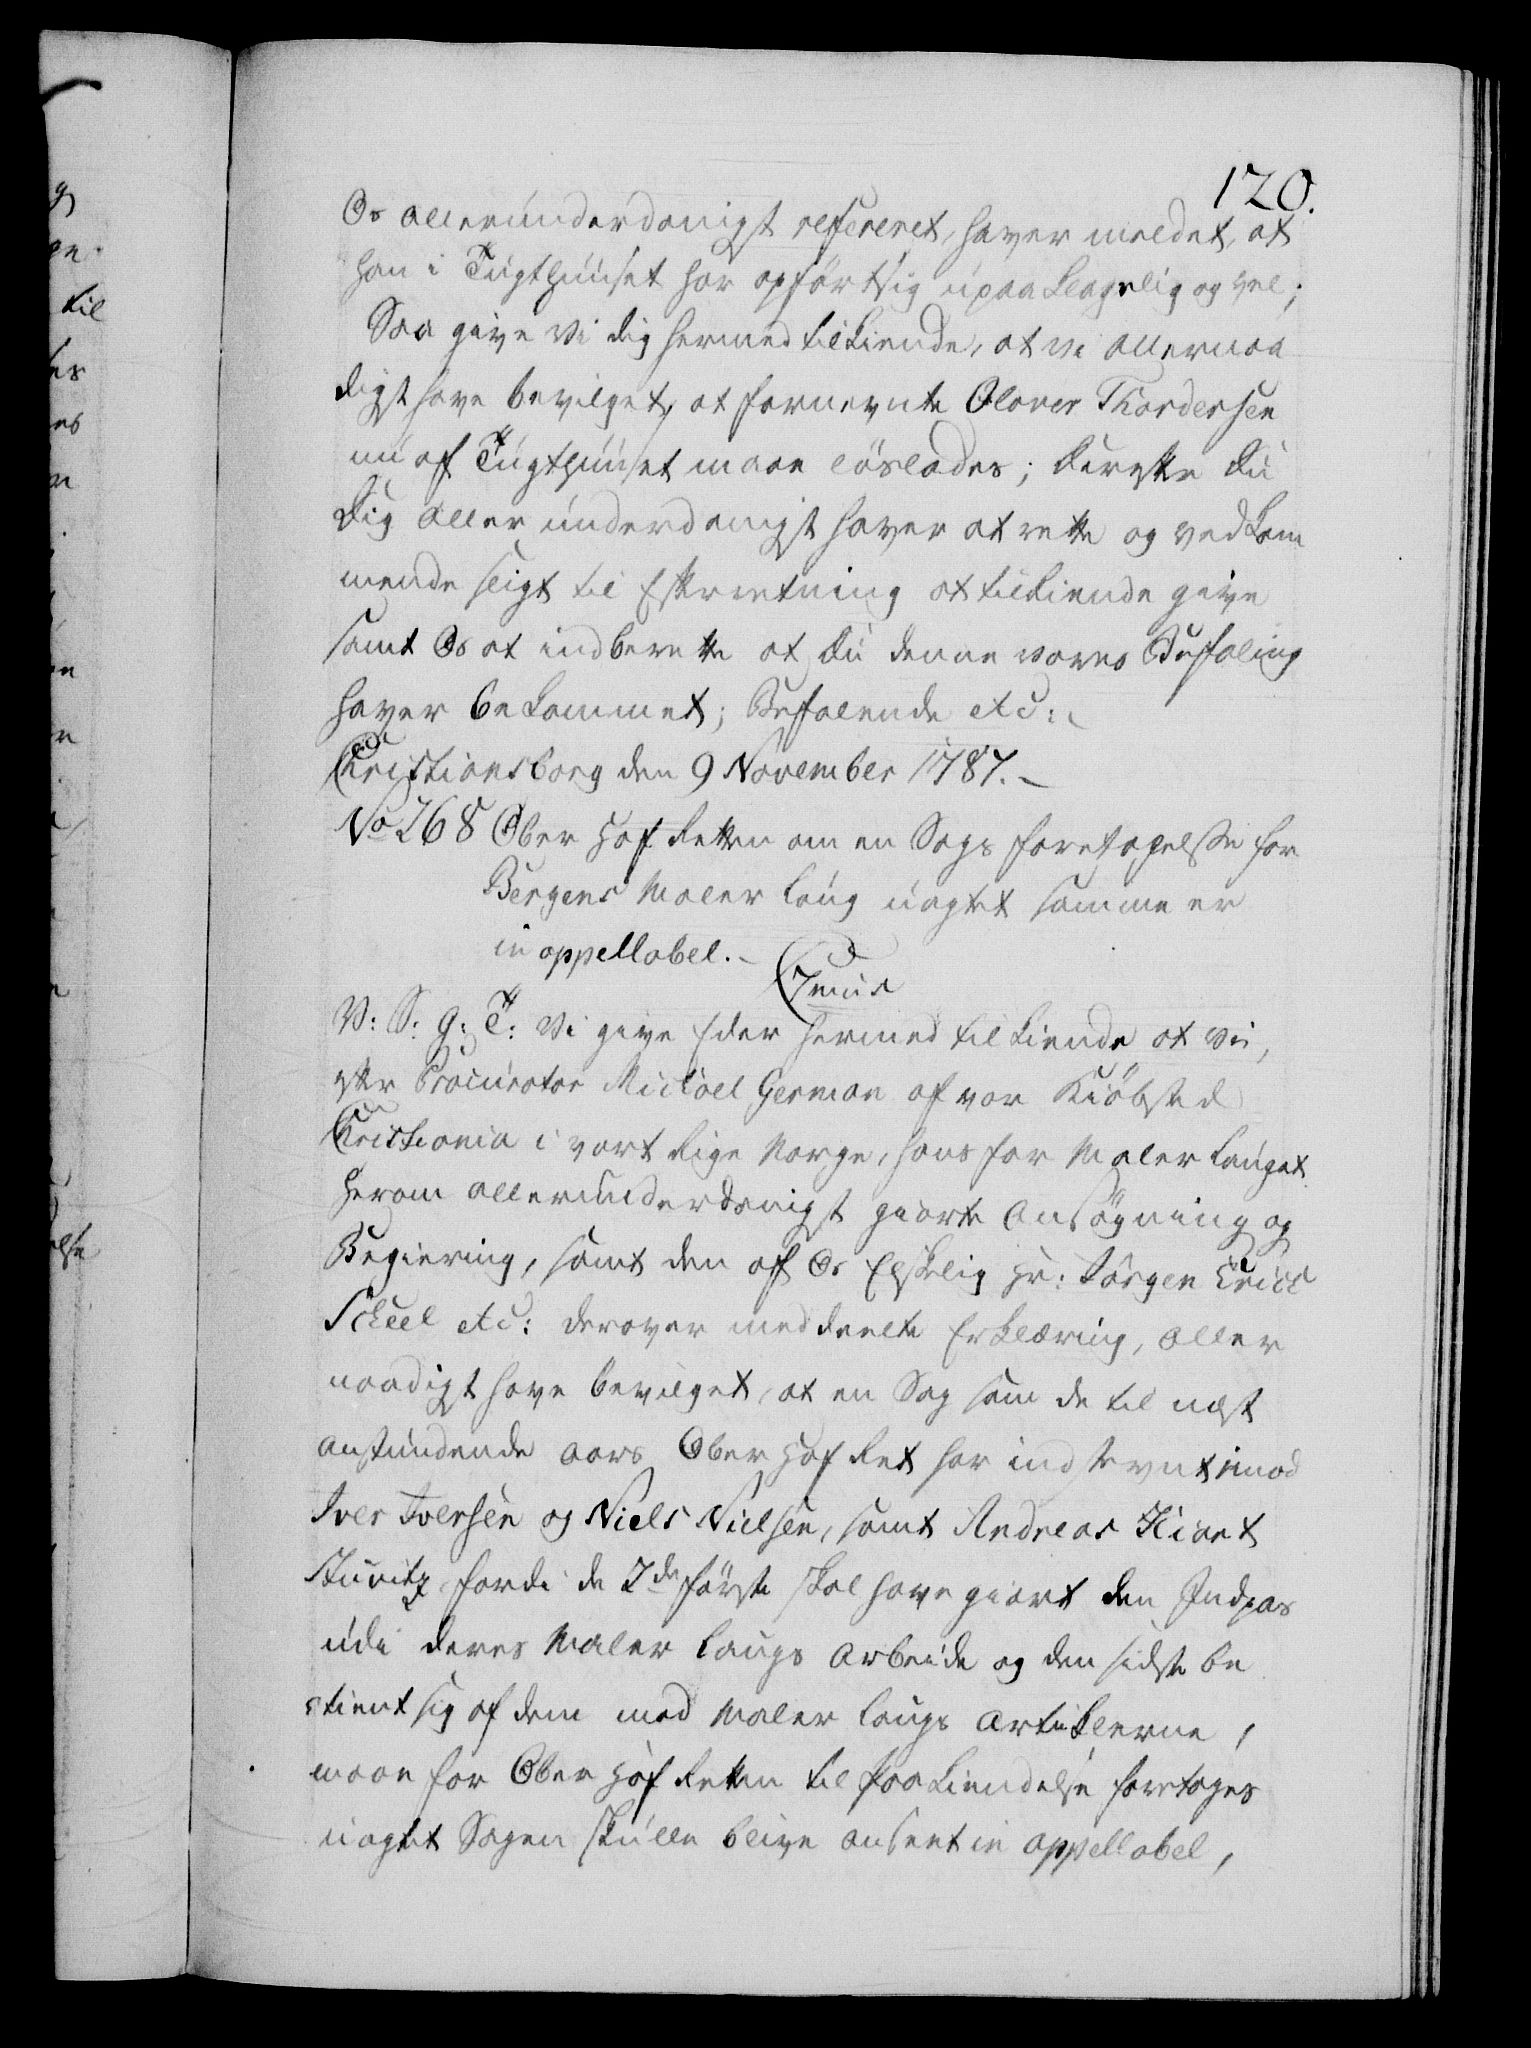 120.
Os allerunderdanigst refereret, haver meldet, at
han i Tugthuuset har opført sig upaaklagelig og vel;
Saa give vi dig hermed tilkiende, at vi allernaa
digst have bevilget, at fornevnte Olaver Thordersen
nu af Tugthuuset maae løslades; derefter du
dig allerunderdanigst haver at rette og vedkom
mende sligt til Efterretning at tilkiende give
samt Os at indberette at du denne vores Befaling
haver bekommet; Befalende etc:
Christiansborg den 9 November 1787.
No 268 Ober Hof Retten om en Sags foretagelse for
Bergens Maler Laug uagtet samme er
inappellabel.
C7mus
V: S: G: T: Vi give Eder hermed tilkiende at vi,
efter Procurator Michael German af vor Kiøbsted
Christiania i vort Rige Norge, hans for Maler Lauget
herom allerunderdanigst giorte Ansøgning og
Begiering, samt den af Os Elskelig Hr: Jørgen Erich
Scheel etc: derover meddeelte Erklæring, aller
naadigst have bevilget, at en Sag som de til næst
anstundende Aars Ober Hof Ret har indstevnt imod
Iver Iversen og Niels Nielsen, samt Andreas
fordi de 2de første skal have giort den Indpas
udi deres Maler Laugs Arbeide og den sidste be
tient sig af dem mod Maler Laugs Artiklerne,
maae for Ober Hof Retten til Paakiendelse foretages
uagtet Sagen skulle blive anseet inappellabel,